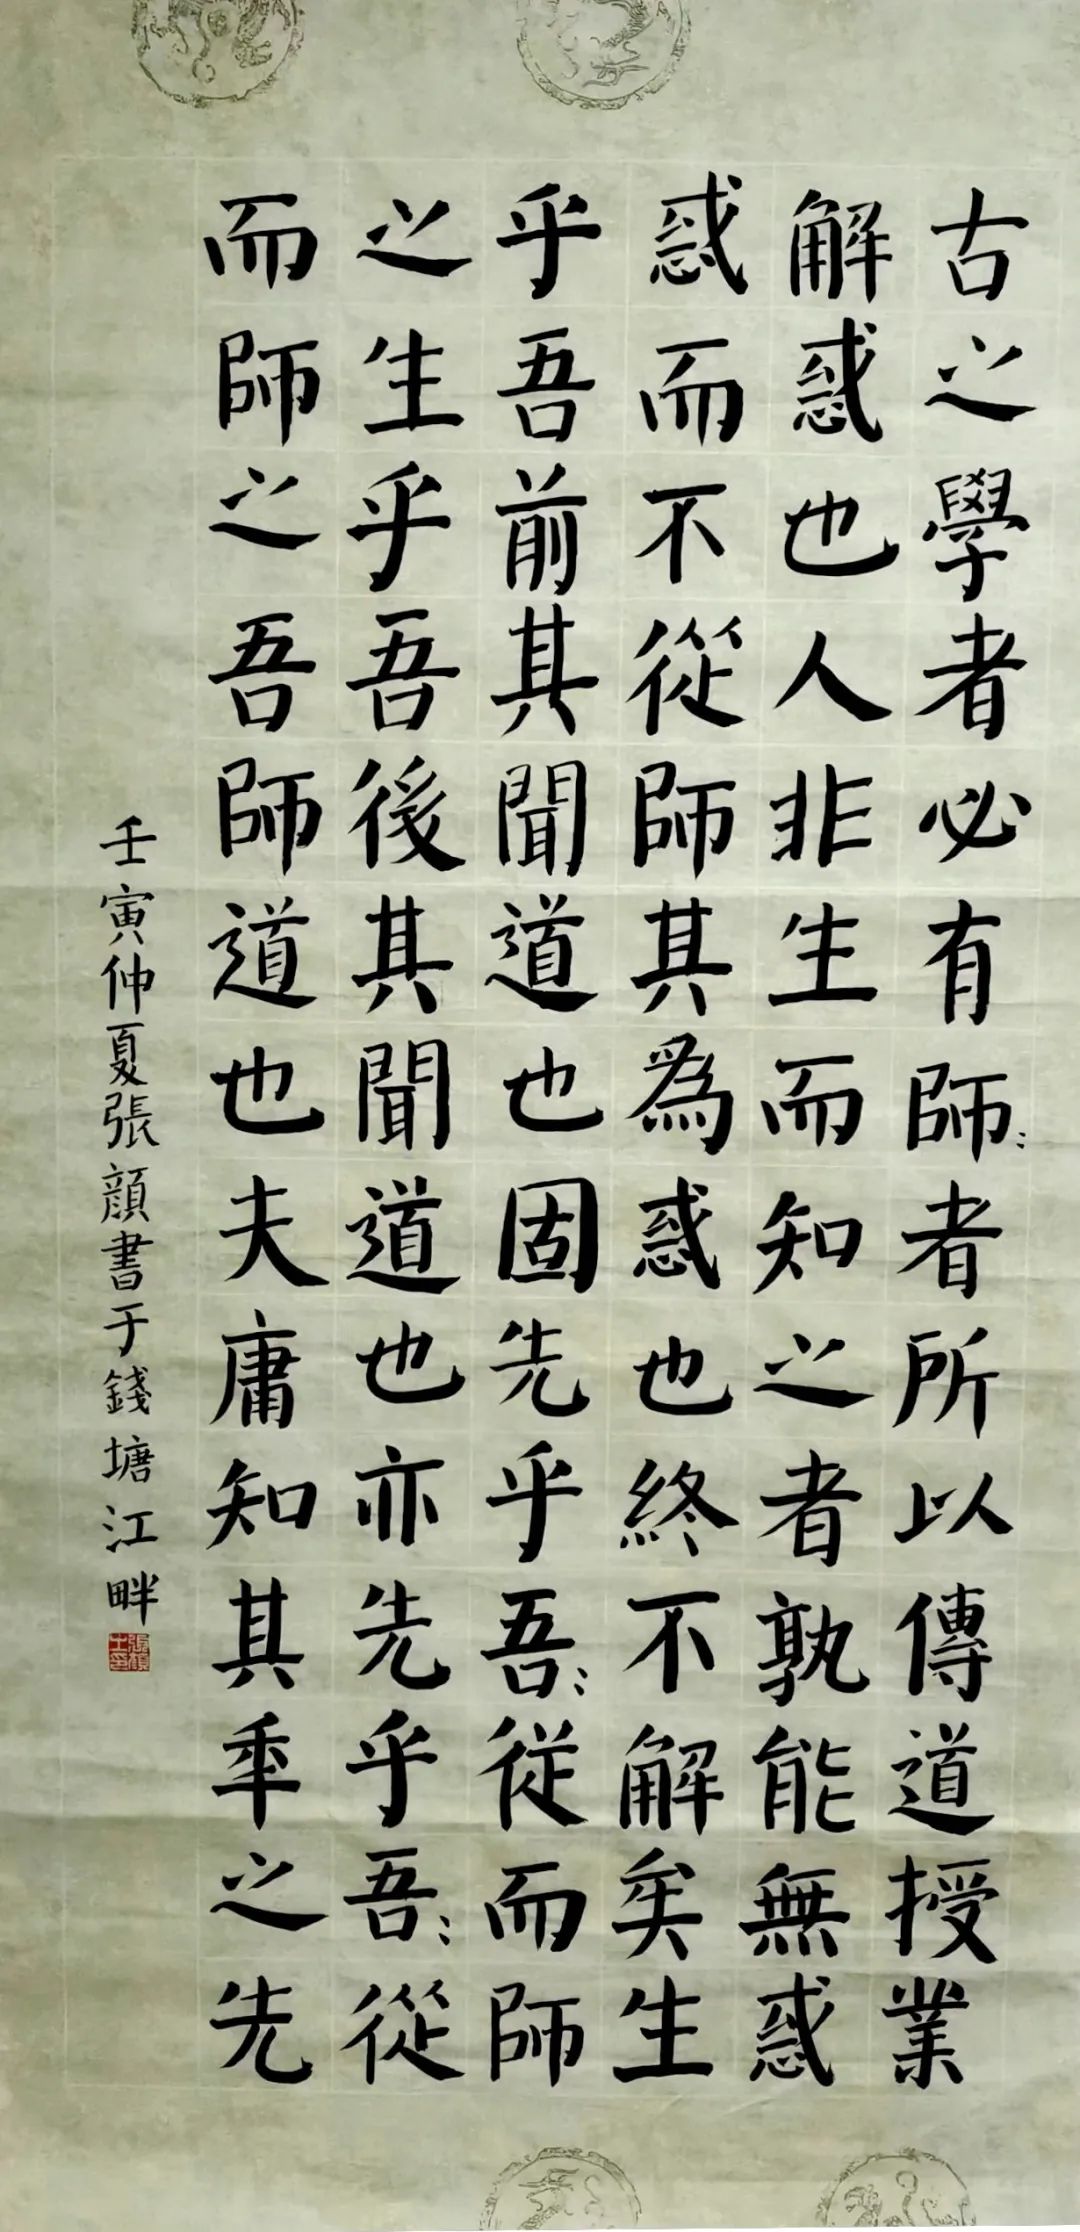 古之學者必有師〻者所以傳道授業
解惑也人非生而知之者孰能無惑
惑而不從師其為惑也終不解矣生
乎吾前其聞道也固先乎吾〻從而師
之生乎吾後其聞道也亦先乎吾〻從
而師之吾師道也夫庸知其年之先
壬寅仲夏張顔書于錢塘江畔